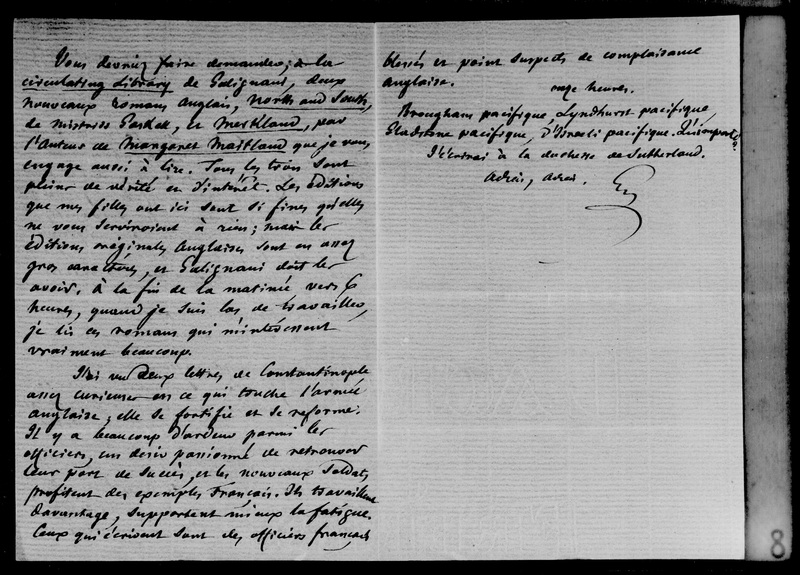 Vous devriez faire demander, à la
circulating library de Galignani, deux
nouveaux romans anglais, North and South,
de mistriss Gaskell, et Merkland, par
l'auteur de Margaret Maitland que je vous
engage aussi à lire. Tous les trois sont
pleins de vérité et d'intérêt. Les éditions
que mes filles ont ici sont si fines qu'elles
ne vous serviroient à rien; mais les
éditions originales anglaises sont en assez
gros caractères, et Galignani doit les
avoir. à la fin de la matinée vers 6
heures, quand je suis las de travailler,
je lis ces romans qui m'intéressent
vraiment beaucoup.
J'ai vu deux lettres de Constantinople
assez curieuses en ce qui touche l'armée
anglaise; elle se fortifie et se reforme.
Il y a beaucoup d'ardeur parmi les
officiers, un desir passionné de retrouver
leur part de succès, et les nouveaux soldats
profitent des exemples français. Ils travaillent
davantage, supportent mieux la fatigue.
Ceux qui écrivent sont des officiers français
blessés et point suspects de complaisance
anglaise.
onze heures.
Brougham pacifique, Lyndhurst pacifique,
Gladstone pacifique, D'Israeli pacifique. Qu'importe?
J'écrirai à la duchesse de Sutherland.
Adieu, adieu.
8